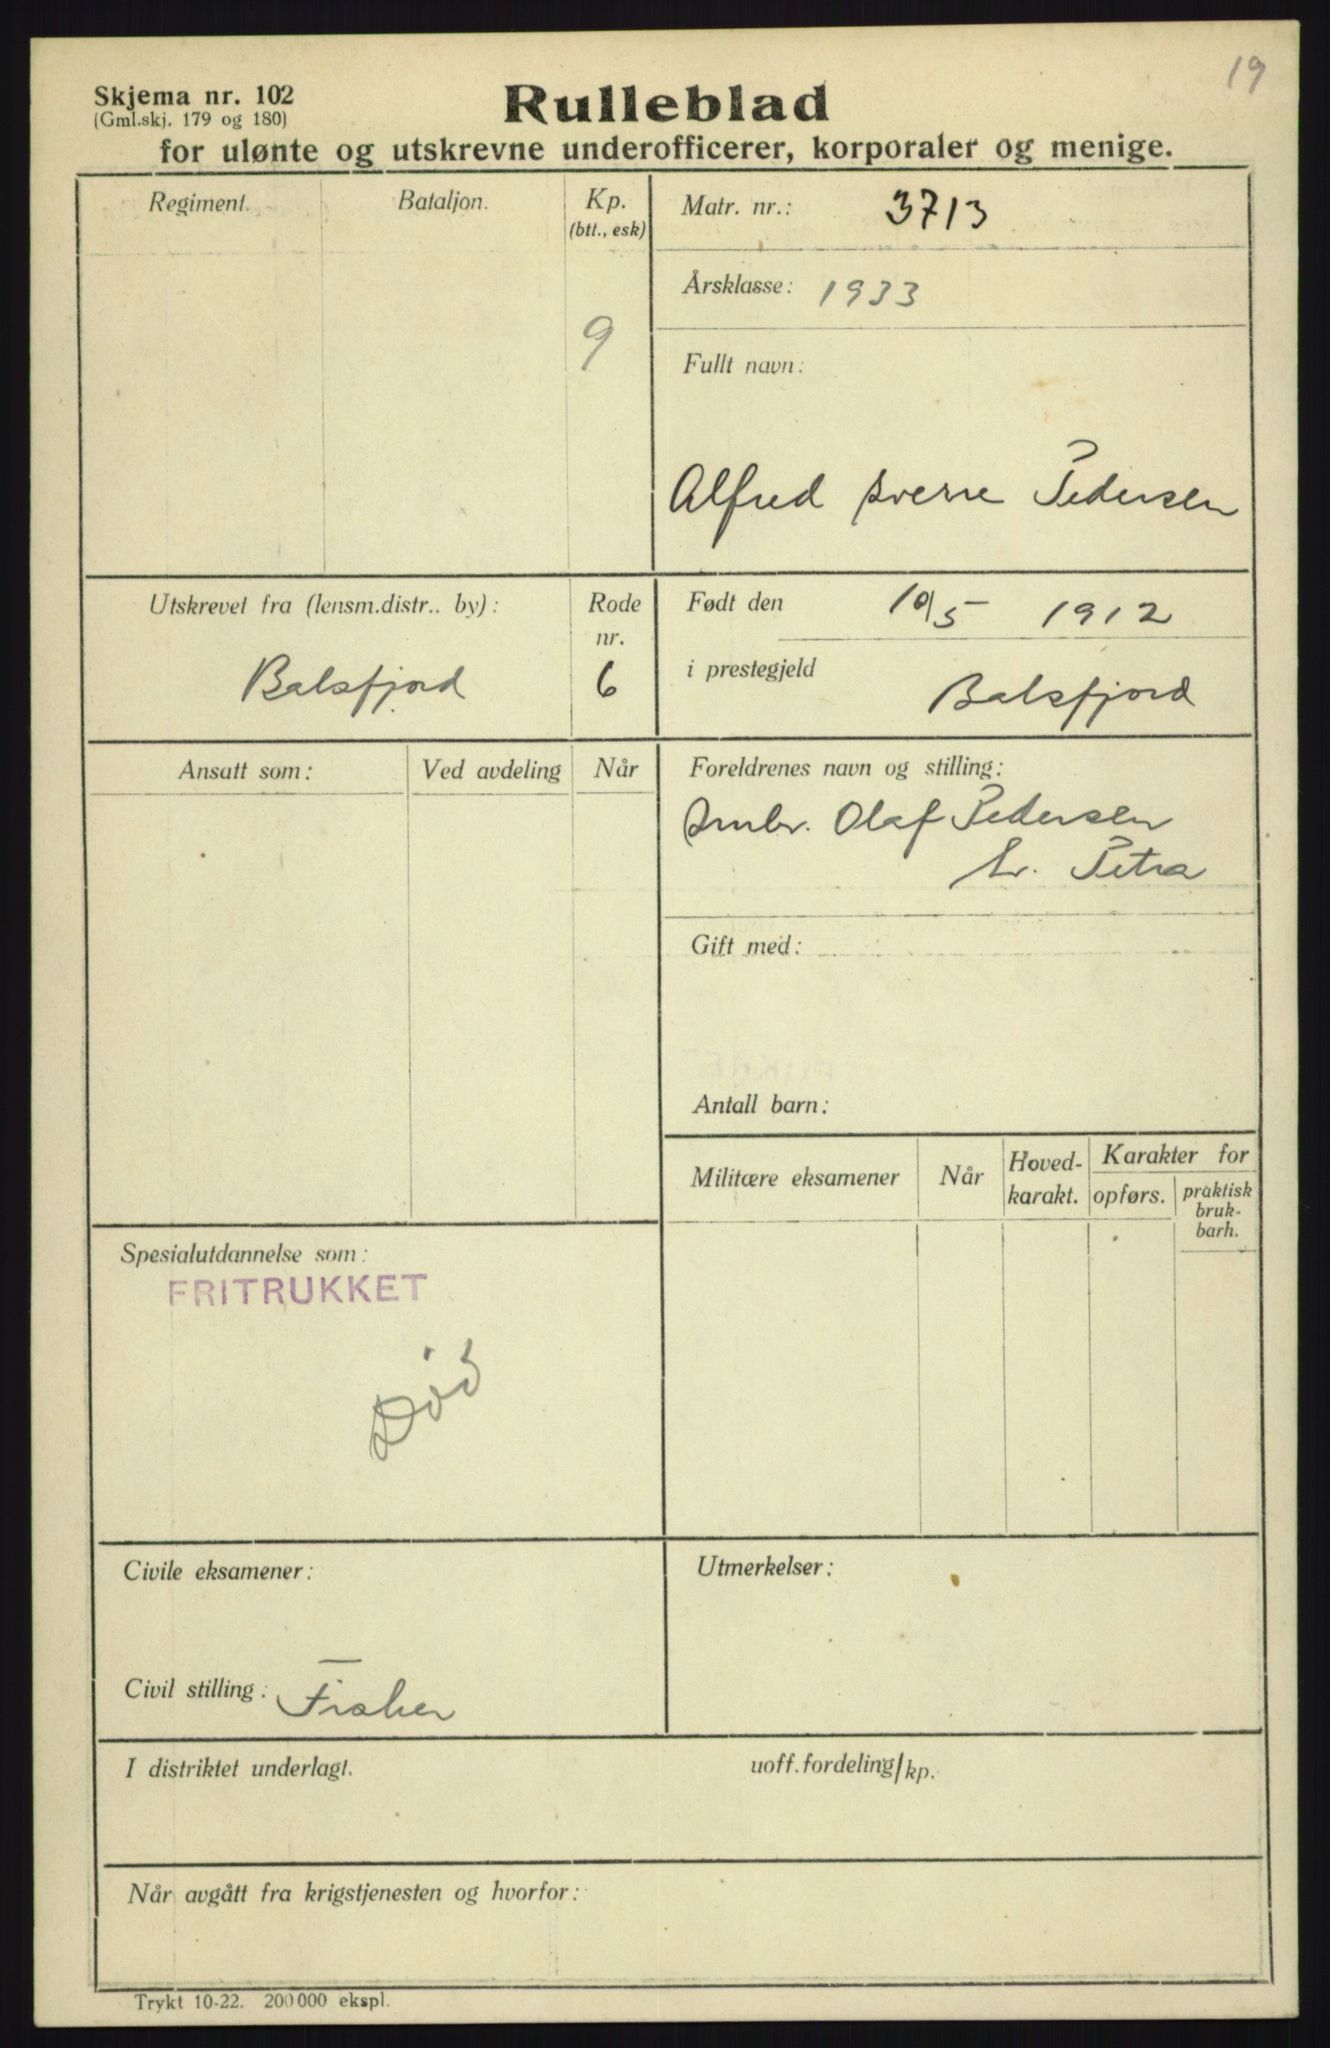 19
Skjema nr. 102
(Gml.skj. 179 og 180)
Rulleblad
for ulønte og utskrevne underofficerer, korporaler og menige.
Regiment.
Bataljon.
Kp.
(btt., esk)
9
Matr. nr.: 3713
Årsklasse: 1933
Fullt navn:
Alfred Sverre Pedersen
Utskrevet fra (lensm.distr.. by):
Balsfjord
Rode
nr.
6
Født den 10/5 1912
i prestegjeld Balsfjord
Ansatt som:
Ved avdeling
Når
Foreldrenes navn og stilling:
Smbr. Olaf Pedersen
Petra
Gift med:
Antall barn:
Militære eksamener
Når
Hoved-
karakt.
Karakter for
opførs.
praktisk
bruk-
barh.
Spesialutdannelse som:
FRITRUKKET
Død
Civile eksamener:
Civil stilling: Fisker
Utmerkelser:
I distriktet underlagt.
uoff.fordeling/kp.
Når avgått fra krigstjenesten og hvorfor:
Trykt 10-22. 200 000 ekspl.